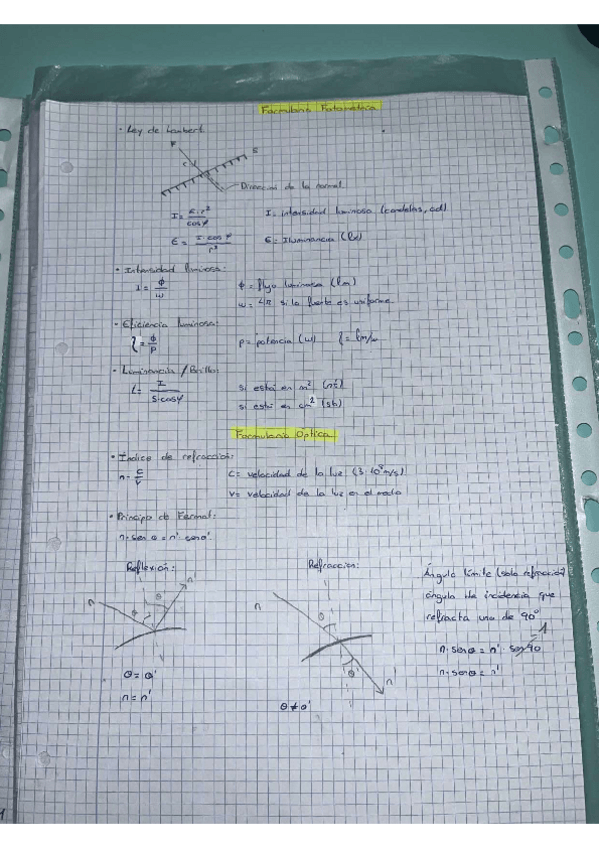 Formulario Fotometria
• Ley de Lambert
F
S
Dirección de la normal
I = E·r² / cos φ
I = intensidad luminosa (candelas, cd)
E = I·cos φ / r²
E = Iluminancia (lx)
• Intensidad luminosa:
I = Φ / ω
Φ = flujo luminoso (lm)
ω = 4π si la fuente es uniforme
• Eficiencia luminosa:
η = Φ / P
P = potencia (w) η = lm/w
• Luminancia / Brillo:
L = I / S·cos φ
si está en m² (nt)
si está en cm² (sb)
Formulario Óptica
• Índice de refracción:
n = c / v
C = velocidad de la luz (3·10⁸ m/s)
V = velocidad de la luz en el medio
• Principio de Fermat:
n·sen θ = n'·sen θ'
Reflexión:
n
θ
θ'
n'
θ = θ'
n = n'
Refracción:
n
θ
θ'
n'
θ ≠ θ'
Ángulo límite (solo refracción)
ángulo de incidencia que
refracta uno de 90°
n·sen θ = n'·sen 90 = 1
n·sen θ = n'